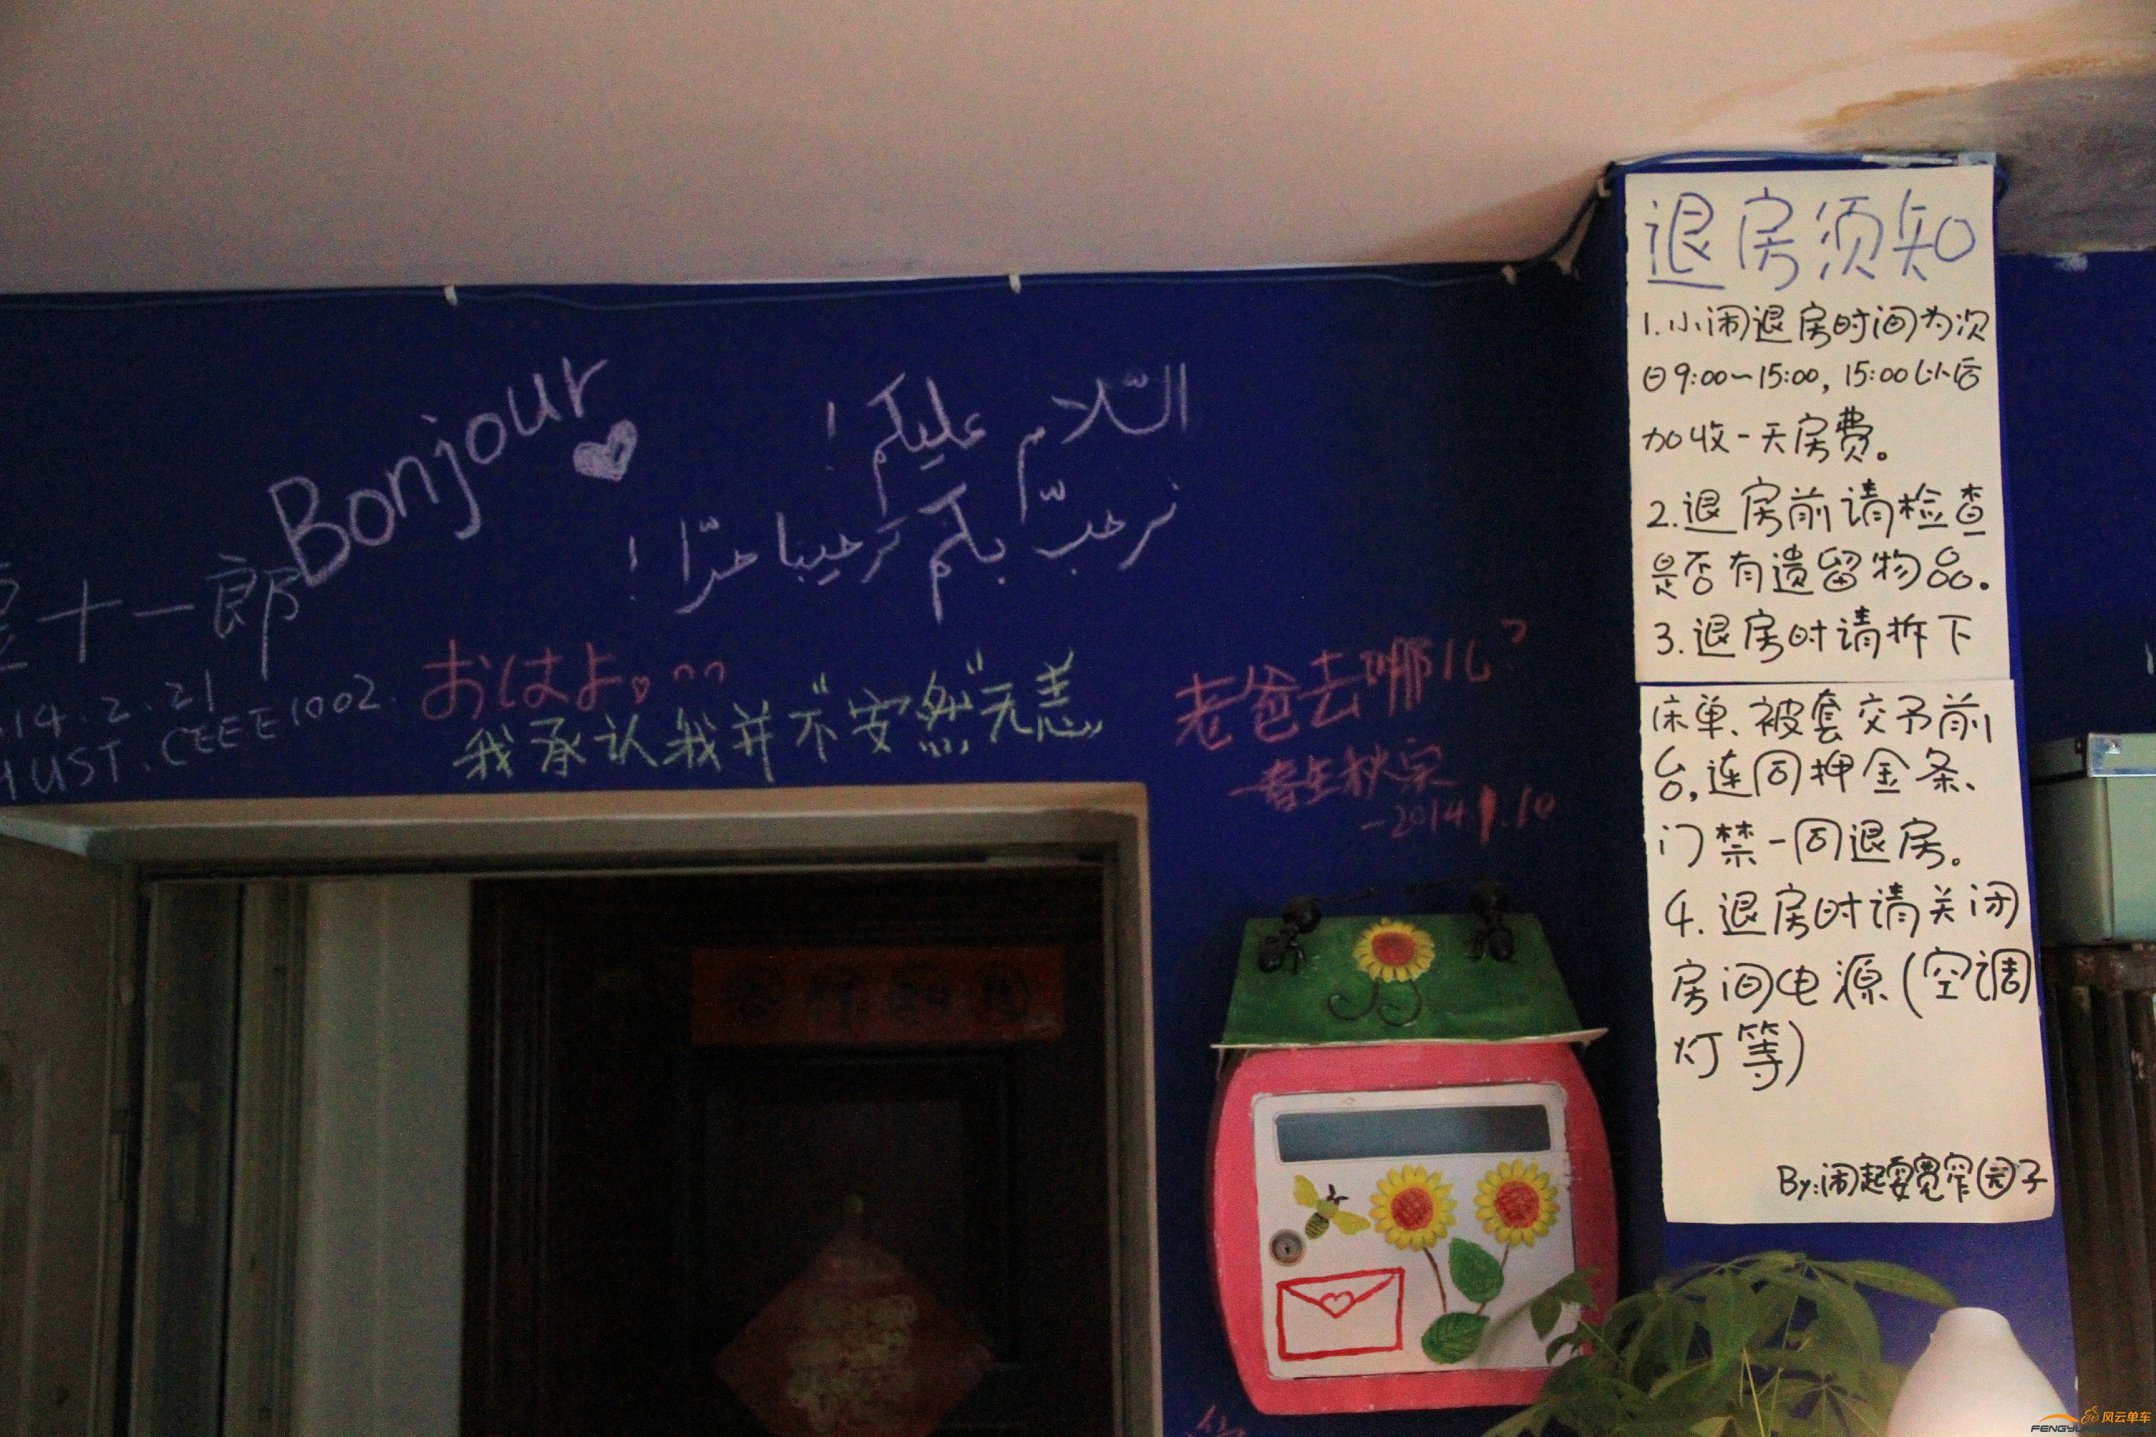 Bonjour
السّلام عليكم!
نرحّب بكم ترحيبا حرّا!
十一郎
14.2.21
HUST.CEEE1002.
おはよ
我承认我并不"安然"无恙
老爸去哪儿?
—春生秋实
—2014.1.10
退房须知
1.小闹退房时间为次
日9:00—15:00，15:00以后
加收一天房费。
2.退房前请检查
是否有遗留物品。
3.退房时请拆下
床单、被套交予前
台，连同押金条、
门禁一同退房。
4.退房时请关闭
房间电源(空调
灯等)
By:闹起耍宽窄园子
风云单车